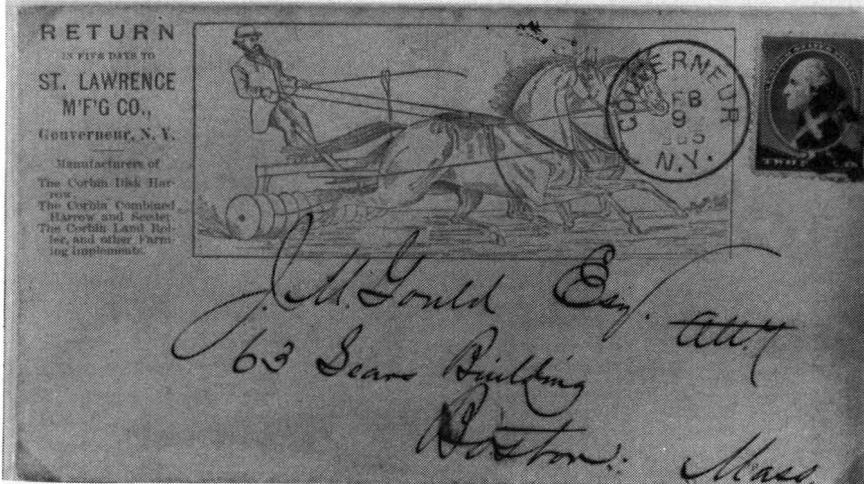 RETURN
IN FIVE DAYS TO
ST. LAWRENCE
M'F'G CO.,
Gouverneur, N. Y.
Manufacturers of
The Corbin Disk Har-
row.
The Corbin Combined
Harrow and Seeder
The Corbin Land Rol-
ler, and other Farm-
ing implements.
GOUVERNEUR
FEB
9
N.Y.
UNITED STATES POSTAGE
TWO
J. M. Gould Esq.
63 Sears Building
Boston.
Mass.